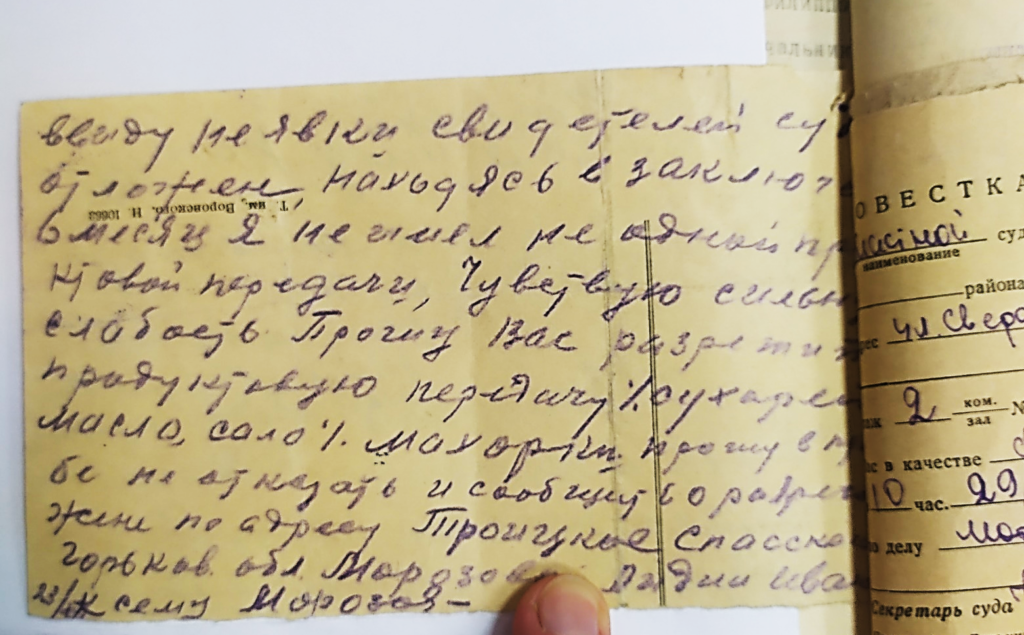 ввиду не явки свидетелей су
отложен, находясь в заключе
Т. им. Воровского, Н. 10663
6 месяц я не имел не одной пр
ктовой передачи, Чувствую сильн
слабость Прошу Вас разрешит
продуктовую передачу /.сухарей
масло, сало /. махорки прошу в пр
бе не отказать и сообщит о разреш
жене по адресу Троицкое Спасско
Горьков. обл. Морозовой Лидии Иван
23/ к сему Морозов
ОВЕСТКА
суд
наименование
района
ул. Сверд
2 ком. зал №
с в качестве
10 час. 29
о делу Мо
Секретарь суда